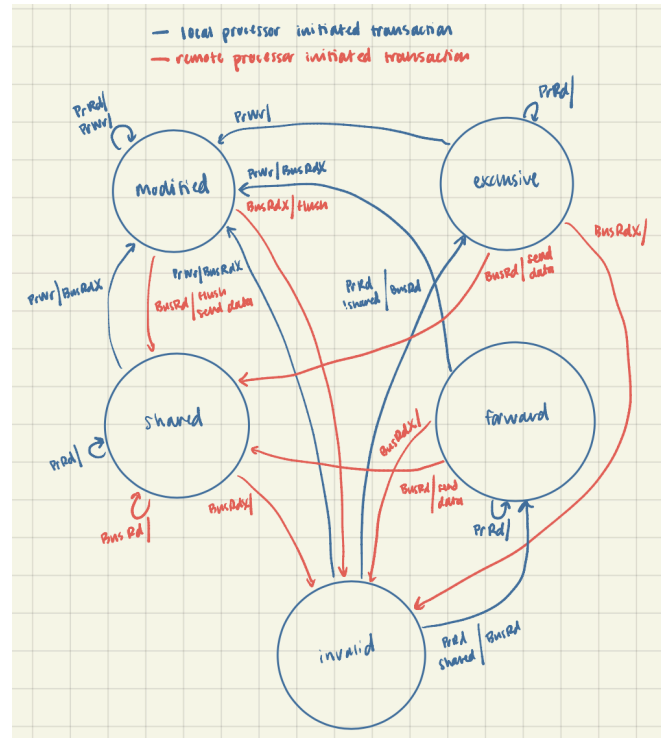 local processor initiated transaction
remote processor initiated transaction
PrRd/
PrWr/
PrWr/
PrRd/
modified
exclusive
PrWr/BusRdX
BusRdX/flush
BusRdX/
PrWr/BusRdX
PrWr/BusRdX
BusRd/flush
send data
PrRd
!shared/BusRd
BusRd/send
data
shared
forward
PrRd/
BusRdX/
BusRd/send
data
BusRd/
BusRdX/
PrRd/
invalid
PrRd
shared/BusRd